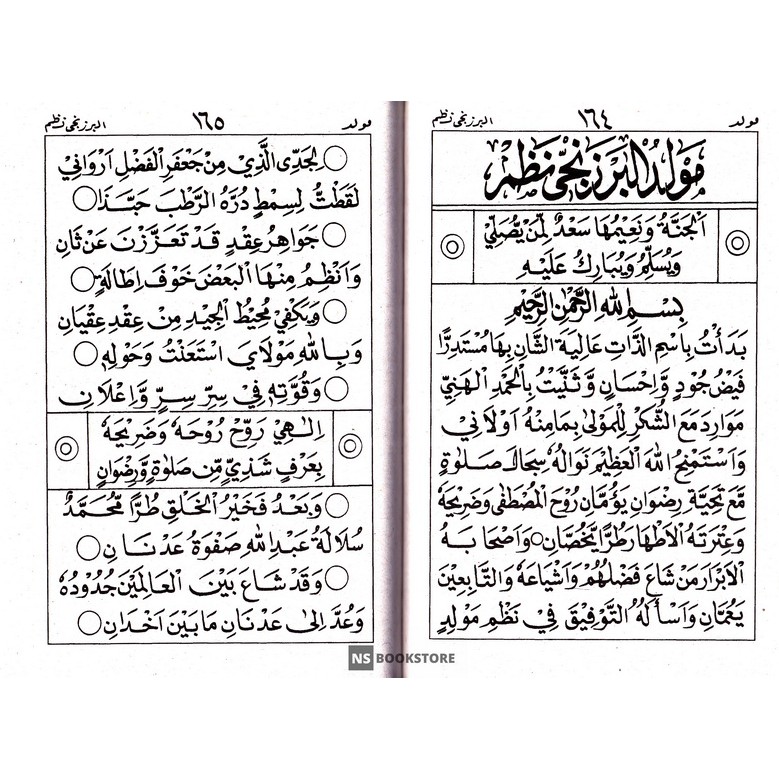 مولد ١٦٤ البرزنجى نظم
مَوْلِدُ الْبَرْزَنْجِىّ نَظَمْ
اَلْجَنَّةُ وَنَعِيْمُهَا سَعْدٌ لِمَنْ يُّصَلِّيْ
وَيُسَلِّمُ وَيُبَارِكُ عَلَيْهِ
بِسْمِ اللهِ الرَّحْمٰنِ الرَّحِيْمِ
بَدَأْتُ بِاسْمِ الذَّاتِ عَالِيَةِ الشَّانِ بِهَا مُسْتَدِرًّا
فَيْضَ جُوْدٍ وَّاِحْسَانٍ وَّثَنَّيْتُ بِالْحَمْدِ الْهَنِيِّ
مَوَارِدَ مَعَ الشُّكْرِ لِلْمَوْلٰى بِمَا مِنْهُ اَوْلَانِي
وَاَسْتَمْنِحُ اللهَ الْعَظِيْمَ نَوَالَهُ سِجَالَ صَلَوٰةٍ
مَّعَ تَحِيَّةِ رِضْوَانٍ يَؤُمَّانِ رُوْحَ الْمُصْطَفٰى وَضَرِيْحَهُ
وَعِتْرَتَهُ الْاَطْهَارَ طُرًّا يَّخُصَّانِ ○ وَاَصْحَابَهُ
الْاَبْرَارَ مَنْ شَاعَ فَضْلُهُمْ وَاَشْيَاعَهُ وَالتَّابِعِيْنَ
يَعُمَّانِ وَاَسْأَلُهُ التَّوْفِيْقَ فِيْ نَظْمِ مَوْلِدٍ
مولد ١٦٥ البرزنجى نظم
○ لِجَدِّى الَّذِيْ مِنْ جَعْفَرِ الْفَضْلِ اَرْوَانِيْ
لَقَطْتُ لِسِمْطٍ دُرَّهُ الرَّطْبَ حَبَّذَا ○
○ جَوَاهِرُ عِقْدٍ قَدْ تَعَزَّزْنَ عَنْ ثَانِ
وَاَنْظُمُ مِنْهَا الْبَعْضَ خَوْفَ اِطَالَةٍ ○
○ وَيَكْفِيْ مُحِيْطُ الْجِيْدِ مِنْ عِقْدِ عِقْيَانِ
وَبِاللهِ مَوْلَايَ اسْتَعَنْتُ وَحَوْلِهِ ○
○ وَقُوَّتِهِ فِيْ سِرِّ سِرٍّ وَّاِعْلَانِ
اِلٰهِيْ رَوِّحْ رُوْحَهُ وَضَرِيْحَهُ
بِعَرْفٍ شَذِيٍّ مِّنْ صَلَوٰةٍ وَّرِضْوَانٍ
○ وَبَعْدُ فَخَيْرُ الْخَلْقِ طُرًّا مُّحَمَّدٌ
سُلَالَةُ عَبْدِ اللهِ صَفْوَةُ عَدْنَانِ ○
○ وَقَدْ شَاعَ بَيْنَ الْعَالَمِيْنَ جُدُوْدُهُ
وَعُدَّ اِلٰى عَدْنَانِ مَا بَيْنَ اَخْدَانِ ○
NS BOOKSTORE